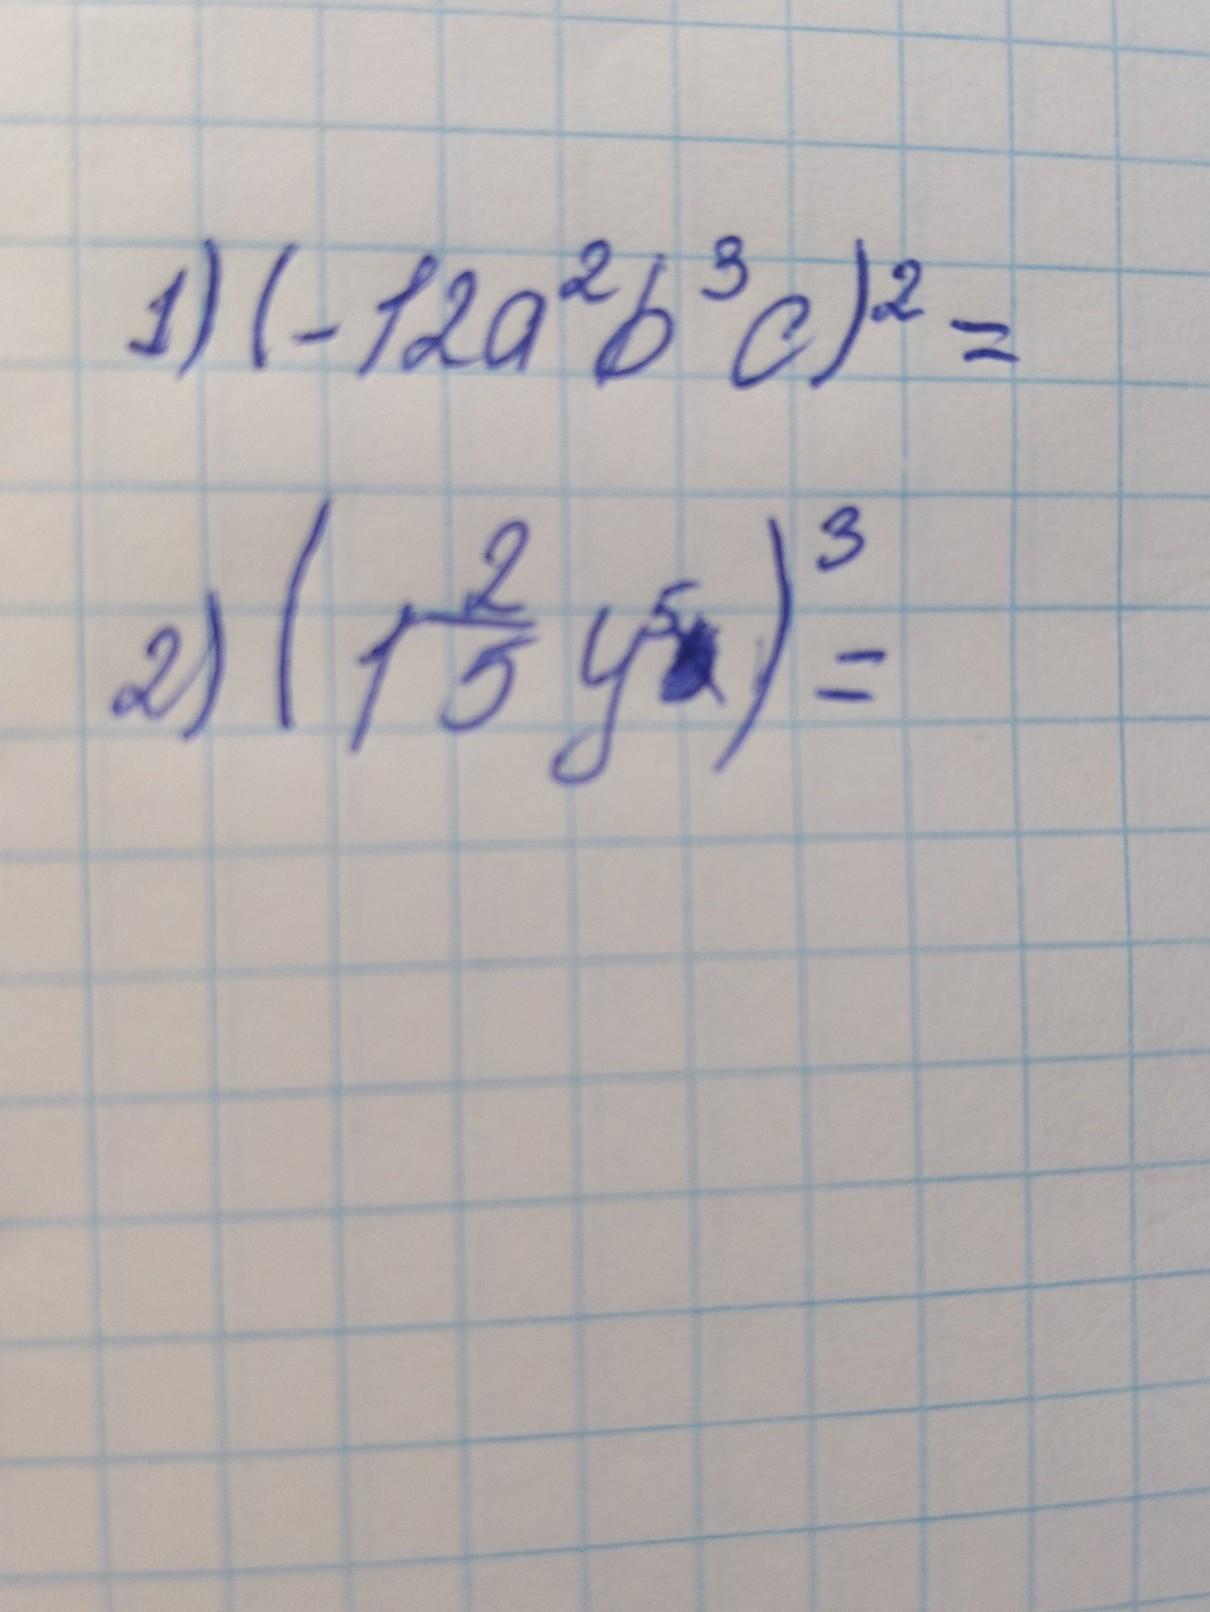 1) (-12a²b³c)² =
2) (1 2/5 y⁵)³ =